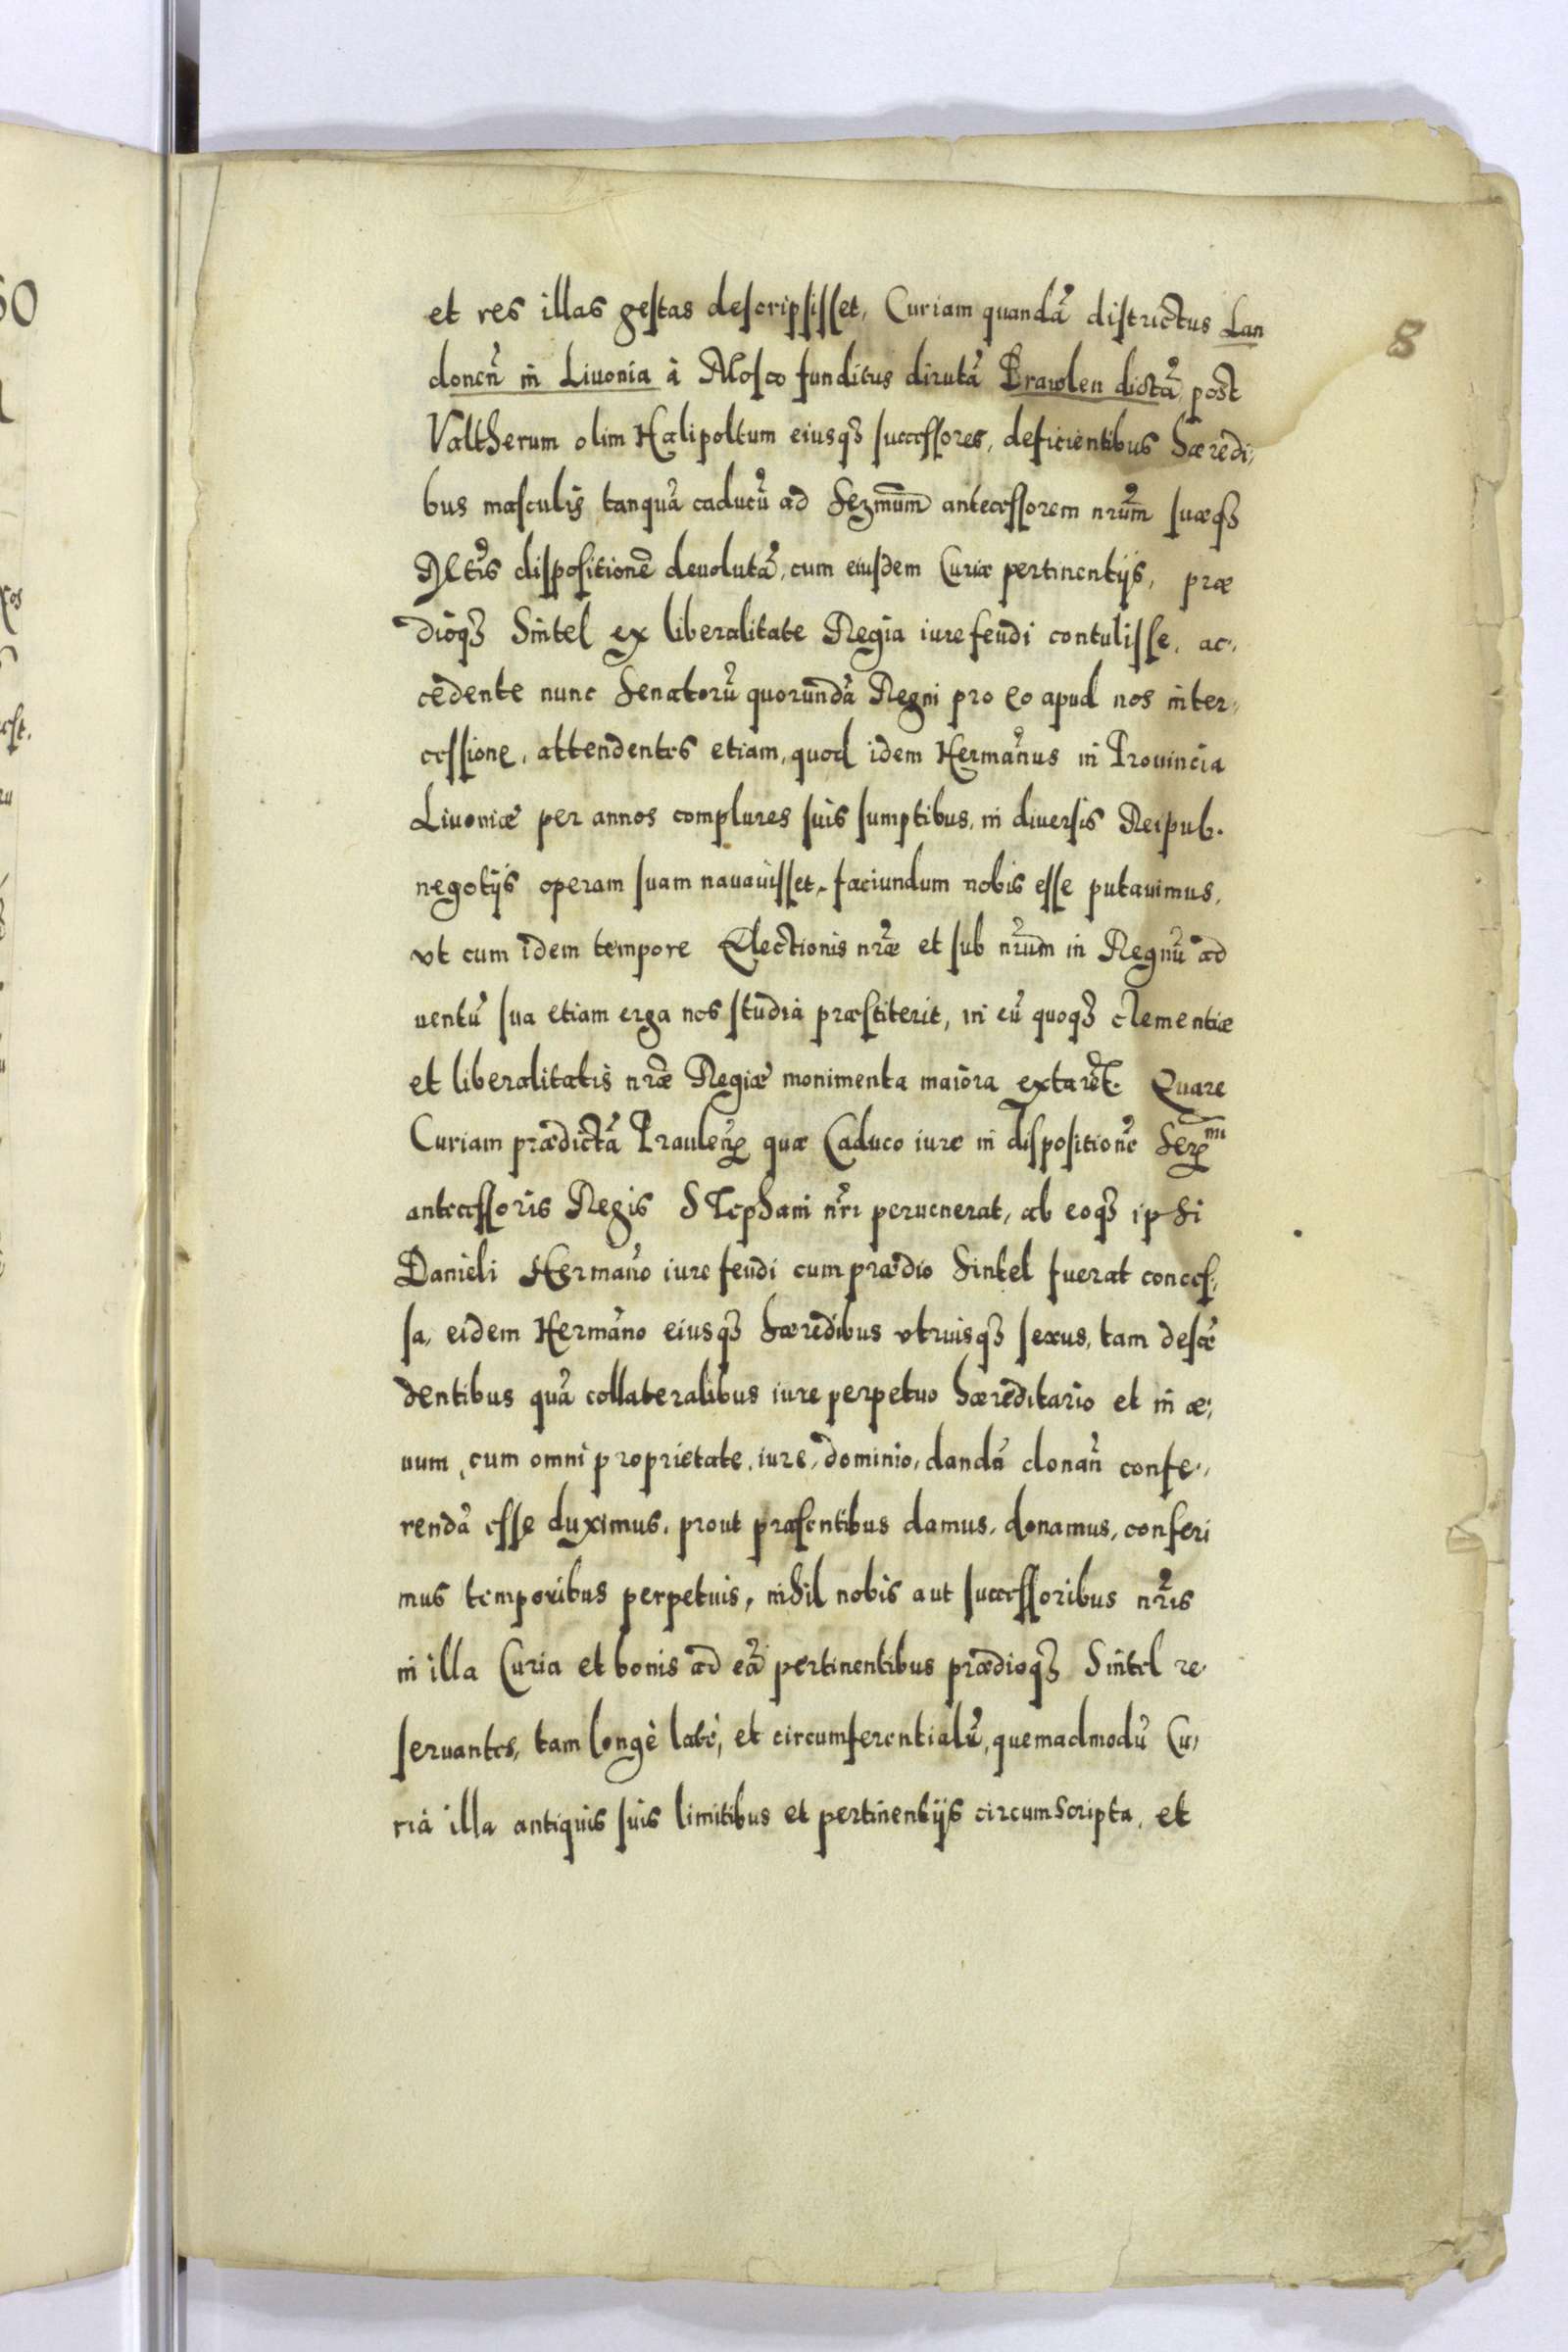 8
et res illas gestas descripsisset, Curiam quandã districtus Lan
donẽn in Liuonia à Mosco funditus dirutã Prawlen dictã, post
Valtherum olim Halipoltum eiusq3 successores, deficientibus hæredi,
bus masculis tanquã caducũ ad Sezmũm antecessorem nrũm suæq3
Mtis dispositionẽ deuolutã, cum eiusdem Curiæ pertinentijs, præ
dioq3 Sintel ex liberalitate Regia iure feudi contulisse, ac,
cedente nunc Senatorũ quorundã Regni pro eo apud nos inter,
cessione, attendentes etiam, quod idem Hermañus in Prouincia
Liuoniæ per annos complures suis sumptibus, in diuersis Reipub.
negotijs operam suam nauauisset, faciundum nobis esse putauimus,
vt cum idem tempore Electionis nr̃æ et sub nr̃um in Regnũ ad
uentũ sua etiam erga nos studia præstiterit, in eũ quoq3 clementiæ
et liberalitatis nr̃æ Regiæ monimenta maiora extarẽt. Quare
Curiam prædictã Praulen̄ quæ Caduco iure in dispositionẽ Ser̄mi
antecessoris Regis Stephani nr̃i peruenerat, ab eoq3 ipsi
Danieli Hermaño iure feudi cum prædio Sintel fuerat conces,
sa, eidem Hermãno eiusq3 hæredibus vtriusq3 sexus, tam descẽ
dentibus quã collateralibus iure perpetuo hæreditario et in æ,
uum, cum omni proprietate, iure, dominio, dandã donañ confe,
rendã esse duximus, prout præsentibus damus, donamus, conferi
mus temporibus perpetuis, nihil nobis aut successoribus nr̃is
in illa Curia et bonis ad eã pertinentibus prædioq3 Sintel re
seruantes, tam longè latè, et circumferentialr̃, quemadmodũ Cu,
ria illa antiquis suis limitibus et pertinentijs circumscripta, et